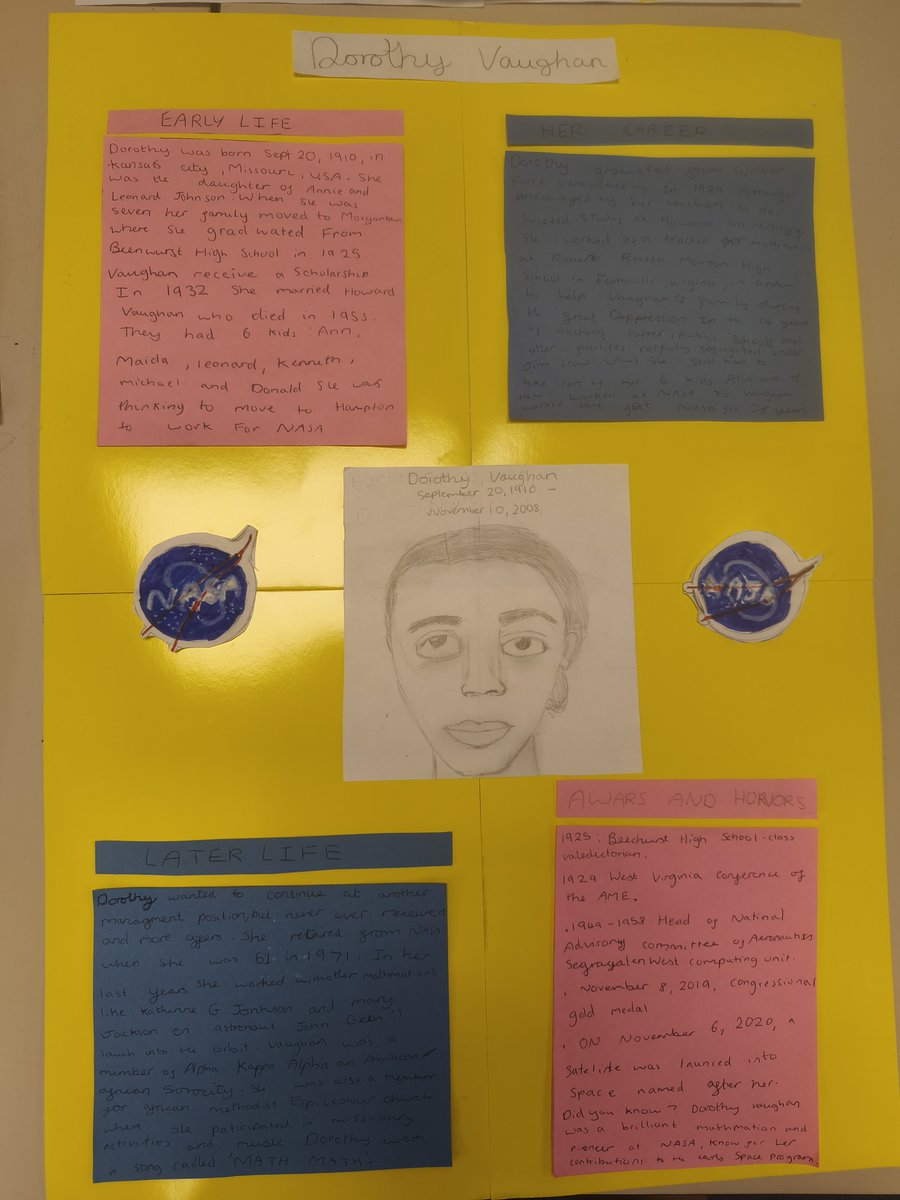 Dorothy Vaughan
EARLY LIFE
Dorothy was born Sept 20, 1910, in
Kansas city, Missouri, USA. She
was the daughter of Annie and
Leonard Johnson. When she was
seven her family moved to Morgantown
where she graduated From
Beenwurst High School in 1925.
Vaughan receive a Scholarship.
In 1932 She married Howard
Vaughan who died in 1955.
They had 6 kids: Ann,
Maida, leonard, Kenneth,
michael and Donald She was
thinking to move to Hampton
to work For NASA
HER CAREER
Dorothy graduated from
Force In 1929 Although
encouraged by her teachers to do
Study at Howard University,
She worked as a teacher for
at Robert Russa High
School in Farmville virginia, in order
to help Vaughan's family during
the great Deppression. In the 14 years
of teaching career, public Schools and
other segregated under
Jim crow LAWS She still had to
take care of her 6 kids Also one of
them worked at NASA TO. Vaughan
worked NASA for 28 years
Dorothy Vaughan
September 20, 1910 -
November 10, 2008
NASA
NASA
LATER LIFE
Dorothy wanted to continue at another
managment position, but never ever received
and more offers. She retared from NASA
when She was 61 in 1971. In her
last years She worked
like Katherine G. Jonhson and mary
Jackson on astronaut John
lauch into the orbit. Vaughan was a
member of Alpha Kappa Alpha an
african Sorocity. She was also a member
for african methodist church
where She paticipated in missionary
activities and music Dorothy wrote
a song called 'MATH MATH'.
AWARS AND HONORS
1925: Beechurst High School-class
valedictorian.
1929 West Virginia Conference of
the AME.
. 1949-1958. Head of National
Advisory committee of Aeronautics
West computing unit.
. November 8, 2019, congressional
gold medal
. ON November 6, 2020, a
Satelite was launced into
Space named after her.
Did you know? Dorothy vaughan
was a brilliant mathmation and
pioneer at NASA, know for her
contributions to the early Space program